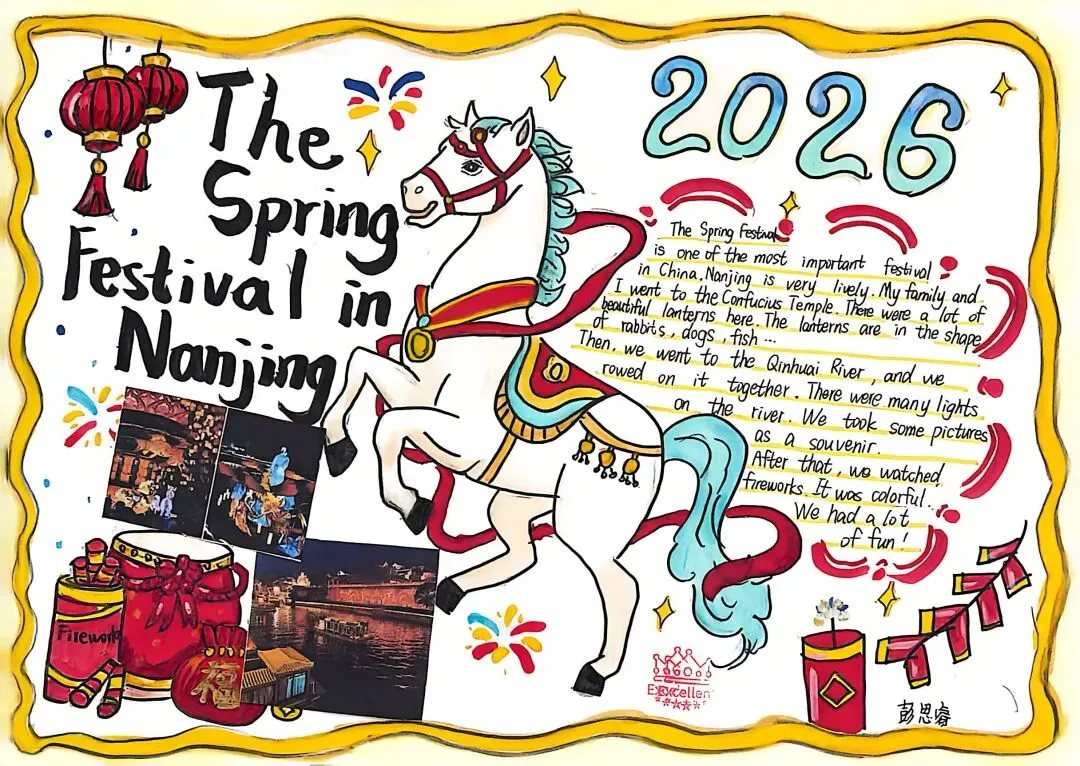 The
Spring
Festival in
Nanjing
2026
The Spring Festival
is one of the most important festival
in China. Nanjing is very lively. My family and
I went to the Confucius Temple. There were a lot of
beautiful lanterns here. The lanterns are in the shape
of rabbits, dogs, fish ...
Then, we went to the Qinhuai River, and we
rowed on it together. There were many lights
on the river. We took some pictures
as a souvenir.
After that, we watched
fireworks. It was colorful...
We had a lot
of fun!
Firework
福
Excellent
彭思睿